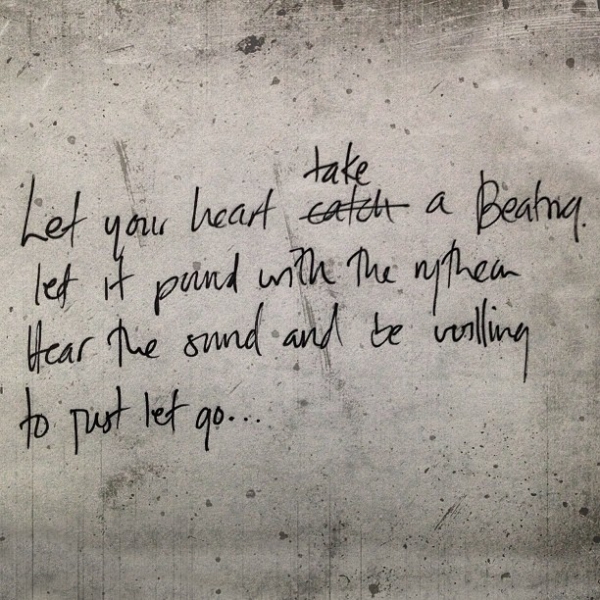 Let your heart take ~~catch~~ a Beating.
let it pound with the rythem
Hear the sound and be willing
to just let go...